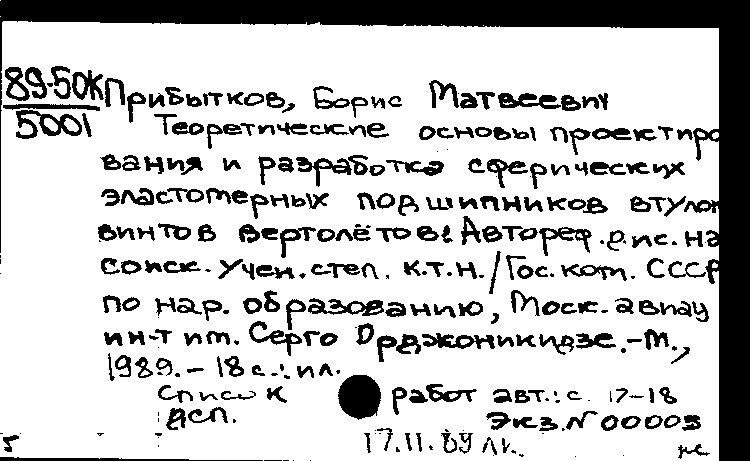 89-50К Прибытков, Борис Матвеевич
5001 Теоретические основы проектиро
вания и разработка сферических
эластомерных подшипников втулок
винтов вертолётов: Автореф. дис. на
соиск. учен. степ. к.т.н. / Гос. ком. СССР
по нар. образованию, Моск. авиац
ин-т им. Серго Орджоникидзе. - М.,
1989. - 18 с.: ил.
Список работ авт.: с. 17-18
ДСП. Экз. N 00003
17.11.89